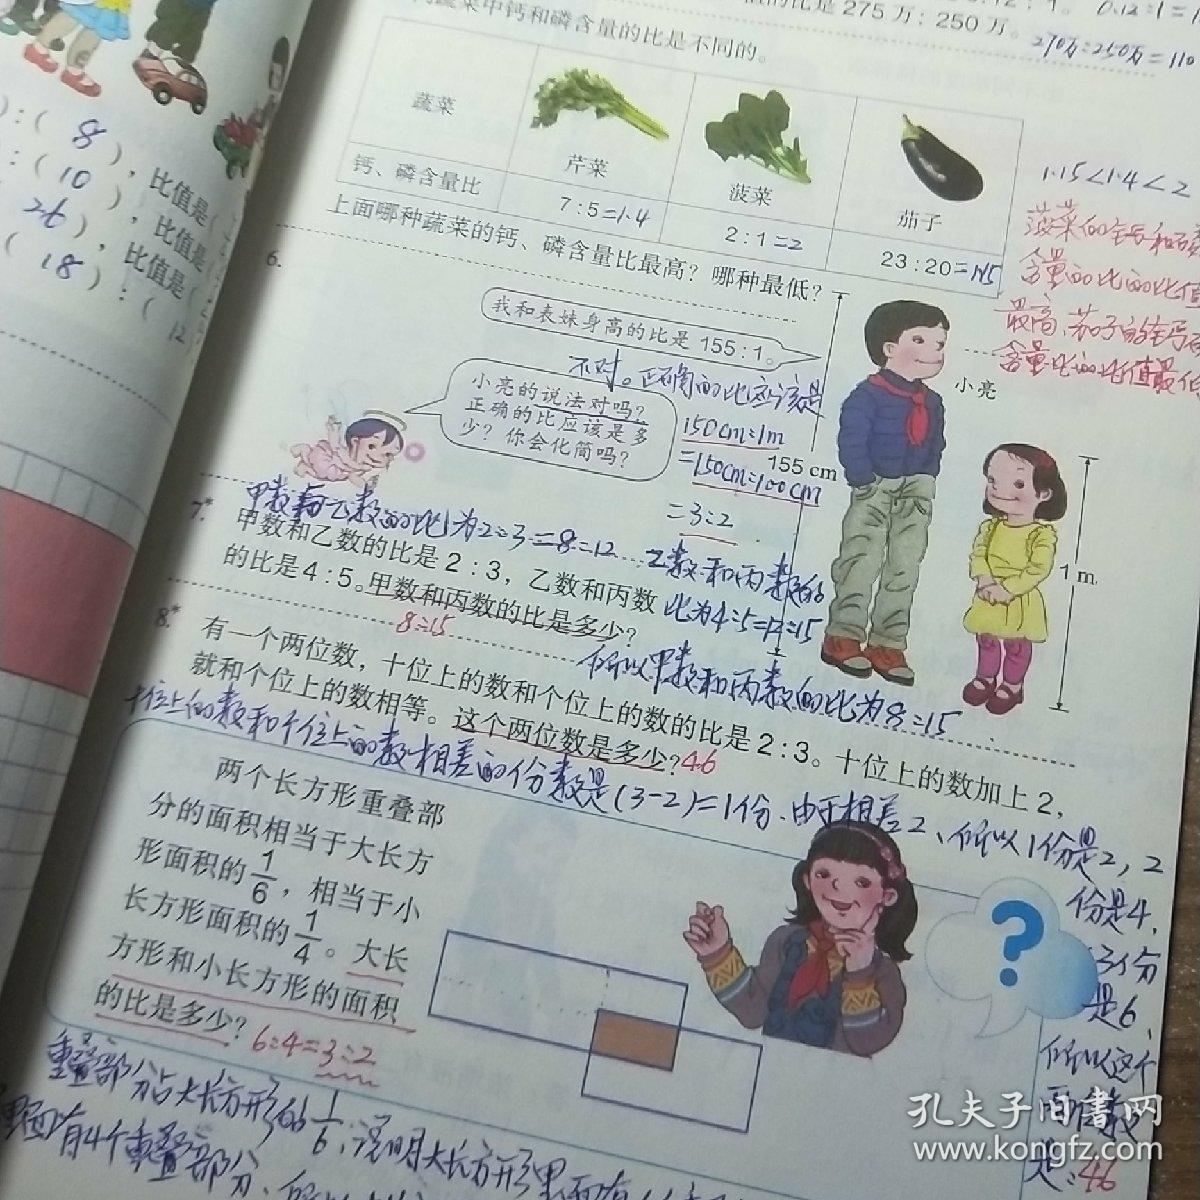 的比是275万：250万。
270万:250万=110
蔬菜中钙和磷含量的比是不同的。
蔬菜
芹菜
菠菜
茄子
钙、磷含量比
7：5=1.4
2：1=2
23：20=1.15
1.15<1.4<2
上面哪种蔬菜的钙、磷含量比最高？哪种最低？
菠菜的钙和磷
含量的比的比值
最高，茄子的钙与磷
含量比的比值最低
6.
我和表妹身高的比是155：1。
不对。正确的比应该是
小亮的说法对吗？
正确的比应该是多
少？你会化简吗？
150cm:1m
=150cm:100cm
=3:2
小亮
155 cm
1 m
甲数和乙数的比为2:3=8:12
7.*
甲数和乙数的比是2：3，乙数和丙数
的比是4：5。甲数和丙数的比是多少？
8:15
乙数和丙数的
比为4:5=12:15
所以甲数和丙数的比为8:15
8.*
有一个两位数，十位上的数和个位上的数的比是2：3。十位上的数加上2，
就和个位上的数相等。这个两位数是多少？46
十位上的数和个位上的数相差的份数是(3-2)=1份.由于相差2、所以1份是2，2
份是4，
3份
是6、
所以这个
两位数
是:46
两个长方形重叠部
分的面积相当于大长方
形面积的1/6，相当于小
长方形面积的1/4。大长
方形和小长方形的面积
的比是多少？6:4=3:2
?
重叠部分占大长方形的1/6，说明大长方形里面有
里面有4个重叠部分、所以
):( 8 )，比值是(
):( 10 )，比值是(
26 )，比值是(
( 18 ):( 12
孔夫子旧书网
www.kongfz.com